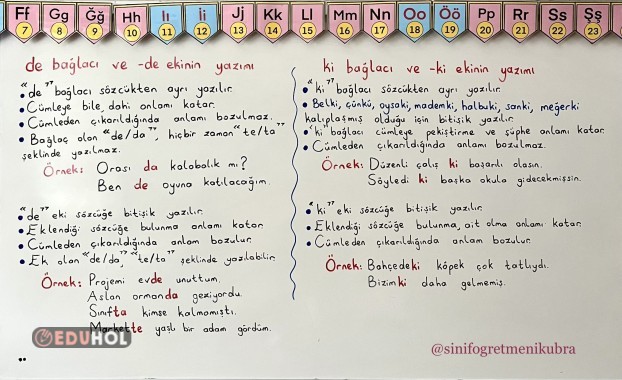 Ff Gg Ğğ Hh Iı İi Jj Kk Ll Mm Nn Oo Öö Pp Rr Ss Şş
7 8 9 10 11 12 13 14 15 16 17 18 19 20 21 22 23
de bağlacı ve -de ekinin yazımı
• "de" bağlacı sözcükten ayrı yazılır.
• Cümleye bile, dahi anlamı katar.
• Cümleden çıkarıldığında anlam bozulmaz.
• Bağlaç olan "de/da", hiçbir zaman "te/ta"
şeklinde yazılmaz.
Örnek: Orası da kalabalık mı?
Ben de oyuna katılacağım.
• "de" eki sözcüğe bitişik yazılır.
• Eklendiği sözcüğe bulunma anlamı katar.
• Cümleden çıkarıldığında anlam bozulur.
• Ek olan "de/da", "te/ta" şeklinde yazılabilir.
Örnek: Projemi evde unuttum.
Aslan ormanda geziyordu.
Sınıfta kimse kalmamıştı.
Markette yaşlı bir adam gördüm.
ki bağlacı ve -ki ekinin yazımı
• "ki" bağlacı sözcükten ayrı yazılır.
• Belki, çünkü, oysaki, mademki, halbuki, sanki, meğerki
kalıplaşmış olduğu için bitişik yazılır.
• "ki" bağlacı cümleye pekiştirme ve şüphe anlamı katar.
• Cümleden çıkarıldığında anlam bozulmaz.
Örnek: Düzenli çalış ki başarılı olasın.
Söyledi ki başka okula gidecekmişsin.
• "ki" eki sözcüğe bitişik yazılır.
• Eklendiği sözcüğe bulunma, ait olma anlamı katar.
• Cümleden çıkarıldığında anlam bozulur.
Örnek: Bahçedeki köpek çok tatlıydı.
Bizimki daha gelmemiş.
EDUHOL
@sinifogretmenikubra